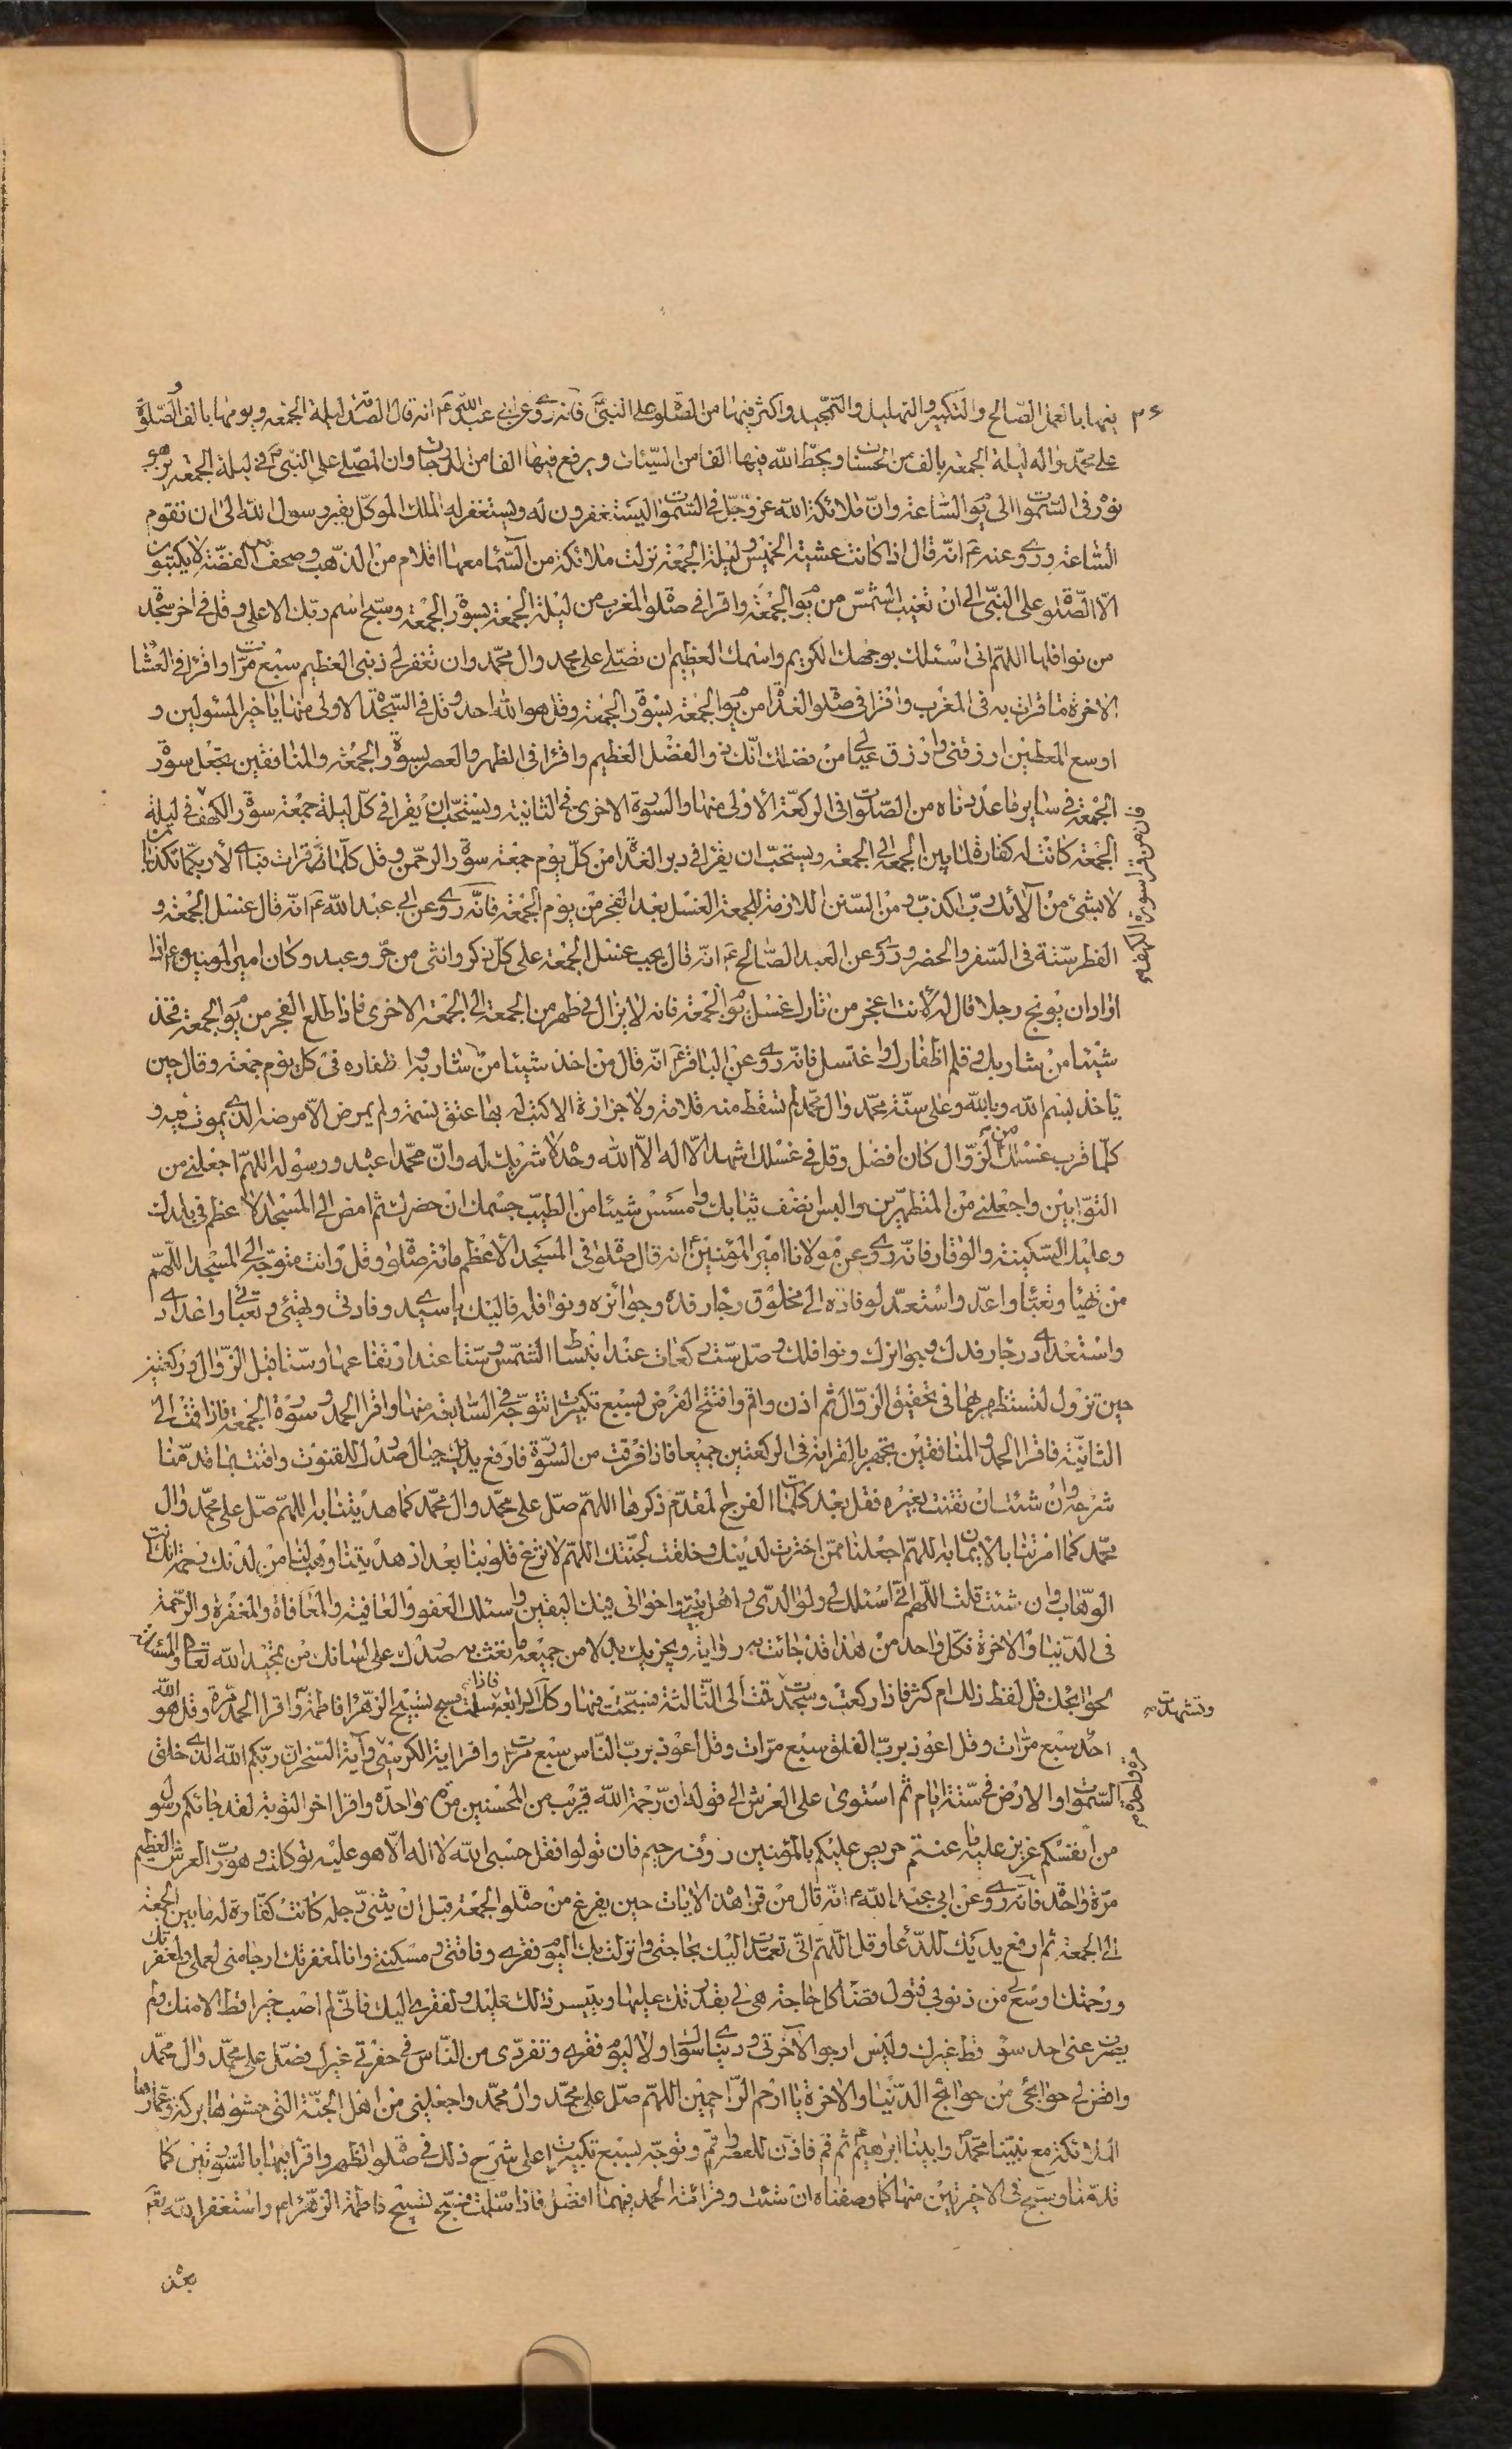 فيها بالعمل الصالح والتكبير والتهليل والتمجيد واكثر فيها من الصلوة على النبى فانه روى عن ابى عبدالله ع انه قال الصدقة ليلة الجمعه ويومها بالف والصلوة
على محمد واله ليلة الجمعه بالف من الحسنات ويحطّ الله فيها الفا من السيّئات ويرفع فيها الفا من الدرجات وان المصلى على النبى ص فى ليلة الجمعه يزهر
نوره فى السموات الى يوم الساعة وانّ ملائكة الله عز وجلّ فى السموات ليستغفرون له ويستغفر له الملك الموكل بقبر رسول الله الى ان تقوم
الساعة وروى عنه ع انّه قال اذا كانت عشية الخميس وليلة الجمعة نزلت ملائكة من السماء معها اقلام من الذهب وصحف الفضّة لا يكتبون
الّا الصّلوة على النبىّ الى ان تغيب الشمس من يوم الجمعة واقرا فى صلوة المغرب من ليلة الجمعة بسورة الجمعة وسبّح اسم ربّك الاعلى وقل فى اخر سجدة
من نوافلها اللهمّ انى اسئلك بوجهك الكريم واسمك العظيم ان تصلّى على محمد وال محمّد وان تغفر لى ذنبى العظيم سبع مرّات واقرا فى العشاء
الاخرة ما قرات به فى المغرب واقرا فى صلوة الغداة من يوم الجمعة بسورة الجمعة وقل هو الله احد وقل فى السّجدة الاولى منها يا خير المسئولين و
اوسع المعطين ارزقنى وارزق عيالى من فضلك انّك ذو الفضل العظيم واقرا فى الظهر والعصر بسورة الجمعة والمنافقين تجعل سورة
الجمعة فى ساير ما عدّدناه من الصّلوات فى الركعة الاولى منها والسورة الاخرى فى الثانية ويستحبّ ان يقرا فى كلّ ليلة جمعة سورة الكهف فى ليلة
فان من قرا سورة الكهف
الجمعة كانت له كفارة لما بين الجمعة الى الجمعة ويستحبّ ان يقرا فى دبر الغداة من كلّ يوم جمعة سورة الرحمن وقل كلّما قرات فبأى الاء ربكما تكذبان
لا بشئ من الائك ربّ اكذب ومن السنن اللازمة للجمعة الغسل بعد الفجر من يوم الجمعة فانّه روى عن ابى عبد الله ع انّه قال غسل الجمعة و
الفطر سنة فى السّفر والحضر وروى عن العبد الصّالح ع انّه قال يجب غسل الجمعة على كلّ ذكر وانثى من حرّ وعبد وكان امير المومنين ع اذا
اراد ان يوبخ رجلا قال له لانت اعجز من تارك غسل يوم الجمعة فانه لا يزال فى طهر من الجمعة الى الجمعة الاخرى فاذا طلع الفجر من يوم الجمعة فخذ
شيئا من شاربك وقلم اظفارك واغتسل فانّه روى عن الباقر ع انّه قال من اخذ شيئا من شاربه واظفاره فى كل يوم جمعة وقال حين
ياخذ بسم الله وبالله وعلى سنّة محمّد وال محمّد لم تسقط منه قلامة ولا جزازة الا كتب له بها عتق نسمة ولم يمرض الّا مرضه الذى يموت فيه و
كلّما قرب غسلك من الزوال كان افضل وقل فى غسلك اشهد الّا اله الّا الله وحده لا شريك له وانّ محمّدا عبده ورسوله اللهمّ اجعلنى من
التوّابين واجعلنى من المتطهّرين والبس انضف ثيابك وامسس شيئا من الطيب جسمك ان حضرك ثم امض الى المسجد الاعظم فى بلدك
وعليك السّكينة والوقار فانّه روى عن مولانا امير المؤمنين ع انه قال صلوة فى المسجد الاعظم مائة صلوة وقل وانت متوجّه الى المسجد اللهمّ
من تهيّا وتعبّا واعدّ واستعدّ لوفادة الى مخلوق رجاء رفده وجوائزه ونوافله فاليك يا سيدى وفادتى وتهيئتى وتعبأتى واعدادى
واستعدادى رجاء رفدك وجوائزك ونوافلك وصلّ ستّ ركعات عند انبساط الشّمس وستّا عند ارتفاعها وستّا قبل الزّوال وركعتين
حين تزول لتستظهر بهما فى تحقيق الزّوال ثم اذن واقم وافتتح الفرض بسبع تكبيرات تتوجّه فى السّابعة منها واقرا الحمد وسورة الجمعة فاذا قمت الى
الثانية فاقرا الحمد والمنافقين تجهر بالقراءة فى الركعتين جميعا فاذا فرغت من السّورة فارفع يديك حيال صدرك للقنوت واقنت بما قدمّنا
شرحه وان شئت ان تقنت بغيره فقل بعد كلمات الفرج المقدّم ذكرها اللهمّ صلّ على محمّد وال محمّد كما هديتنا به اللهمّ صلّ على محمّد وال
محمّد كما امرتنا بالايمان به اللهمّ اجعلنا ممّن اخترت لدينك وخلقت لجنّتك اللهمّ لا تزغ قلوبنا بعد اذ هديتنا وهب لنا من لدنك رحمة انك انت
الوهّاب وان شئت قلت اللهمّ انّى اسئلك لى ولوالدىّ واهل بيتى واخوانى فيك اليقين واسئلك العفو والعافية والمعافاة والمغفرة والرّحمة
فى الدّنيا والاخرة فكلّ واحد من هذا قد جائت به رواية ويجزيك بدلا من جميعه ما تبعث به صدرك على لسانك من تمجيد الله تعالى والمسألة
لحوائجك قل لفظ ذلك ام كثر فاذا ركعت وسجدت قمت الى الثّالثة فسبّحت فيها وكذا الرابعة فاذا سلمت فسبح تسبيح الزهرا فاطمة واقرا الحمد مرّة وقل هو الله
وتشهدت صح
احد سبع مرّات وقل اعوذ بربّ الفلق سبع مرّات وقل اعوذ بربّ النّاس سبع مرّات واقرا اية الكرسى واية السّخرة انّ ربّكم الله الذى خلق
السّموات والارض فى ستّة ايّام ثم استوى على العرش الى قوله انّ رحمة الله قريب من المحسنين مرّة واحدة واقرا اخر التوبة لقد جائكم رسول
من انفسكم عزيز عليه ما عنتم حريص عليكم بالمؤمنين رؤف رحيم فان تولوا فقل حسبى الله لا اله الّا هو عليه توكلت وهو ربّ العرش العظيم
مرّة واحدة فانّه روى عن ابى عبد الله ع انّه قال من قرا هذه الايات حين يفرغ من صلوة الجمعة قبل ان يثنى رجله كانت كفّارة له ما بين الجمعة
الى الجمعة ثم ارفع يديك للدّعا وقل اللهمّ انّى تعمّدت اليك بحاجتى وانزلت بك اليوم فقرى وفاقتى ومسكنتى وانا لمغفرتك ارجا منى لعملى ولمغفرتك
ورحمتك اوسع لى من ذنوبى فتول قضا كل حاجة هى لى بقدرتك عليها وبتيسر ذلك عليك ولفقرى اليك فانّى لم اصب خيرا قط الا منك ولم
يصرف عنى احد سوء قط غيرك وليس ارجو لآخرتى ودنياى سواك ولا ليوم فقرى وتفردى من النّاس فى حفرتى غيرك فصلّ على محمّد وال محمّد
واقض لى حوائجى من حوائج الدّنيا والاخرة يا ارحم الرّاحمين اللهمّ صلّ على محمّد وال محمّد واجعلنى من اهل الجنّة التى حشوها بركة وعمّارها
الملائكة مع نبيّنا محمّد ص وابينا ابراهيم ع ثم قم فاذّن للعصر واقم وتوجّه بسبع تكبيرات على شرح ذلك فى صلوة الظهر واقرا فيها بالسّورتين كما
قدّمنا وسبح فى الاخيرتين منها كما وصفناه ان شئت وقرائة الحمد فيهما افضل فاذا سلمت فسبّح تسبيح فاطمة الزّهراء ع واستغفر الله تعالى
بعد